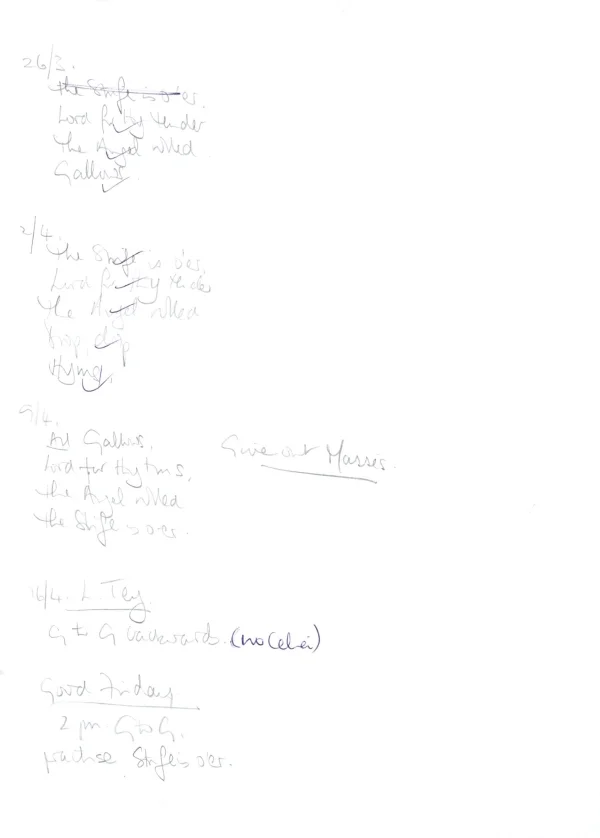 26/3.
the Strife is o'er.
Lord for thy tender
the Angel rolled
Gallus
2/4.
the Strife is o'er.
Lord for thy tender
the Angel rolled
Drop, drop
Hymn,
9/4.
All Gallus.
Lord for thy t m s,
the Angel rolled
the Strife is o'er.
Give out Masses.
16/4. L. Tey.
G to G backwards. (no Celei)
Good Friday
2 pm. G to G.
practise Strife is o'er.